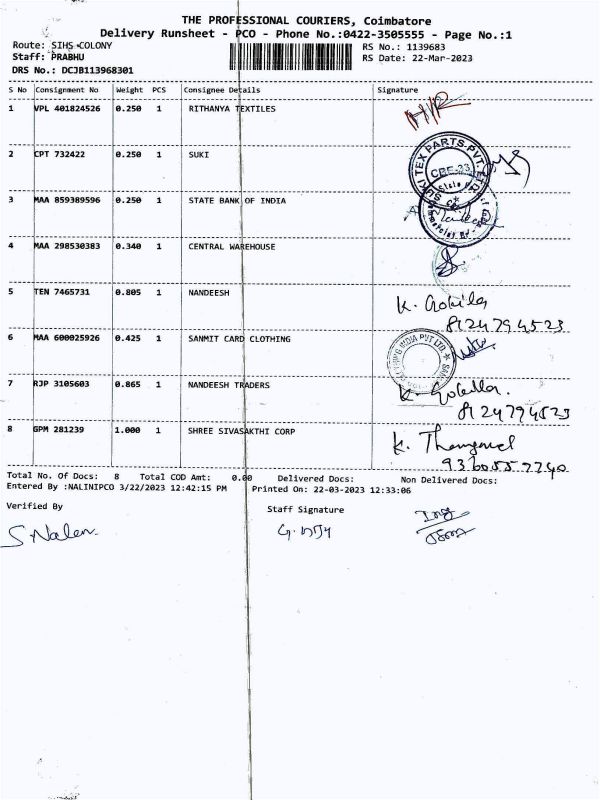 THE PROFESSIONAL COURIERS, Coimbatore
Delivery Runsheet - PCO - Phone No.:0422-3505555 - Page No.:1
Route: SIHS COLONY
RS No.: 1139683
Staff: PRABHU
RS Date: 22-Mar-2023
DRS No.: DCJB113968301
S No Consignment No Weight PCS Consignee Details Signature
1 VPL 401824526 0.250 1 RITHANYA TEXTILES
2 CPT 732422 0.250 1 SUKI
SUKI TEX PARTS PVT. LTD.
CBE-33
3 MAA 859389596 0.250 1 STATE BANK OF INDIA
4 MAA 298530383 0.340 1 CENTRAL WAREHOUSE
5 TEN 7465731 0.805 1 NANDEESH K. Gokila
8124794523
6 MAA 600025926 0.425 1 SANMIT CARD CLOTHING
INDIA PVT LTD.
7 RJP 3105603 0.865 1 NANDEESH TRADERS K. Gokila
8124794523
8 GPM 281239 1.000 1 SHREE SIVASAKTHI CORP K. Thangavel
9360557740
Total No. Of Docs: 8 Total COD Amt: 0.00 Delivered Docs: Non Delivered Docs:
Entered By :NALINIPCO 3/22/2023 12:42:15 PM Printed On: 22-03-2023 12:33:06
Verified By Staff Signature
S. Nalen.